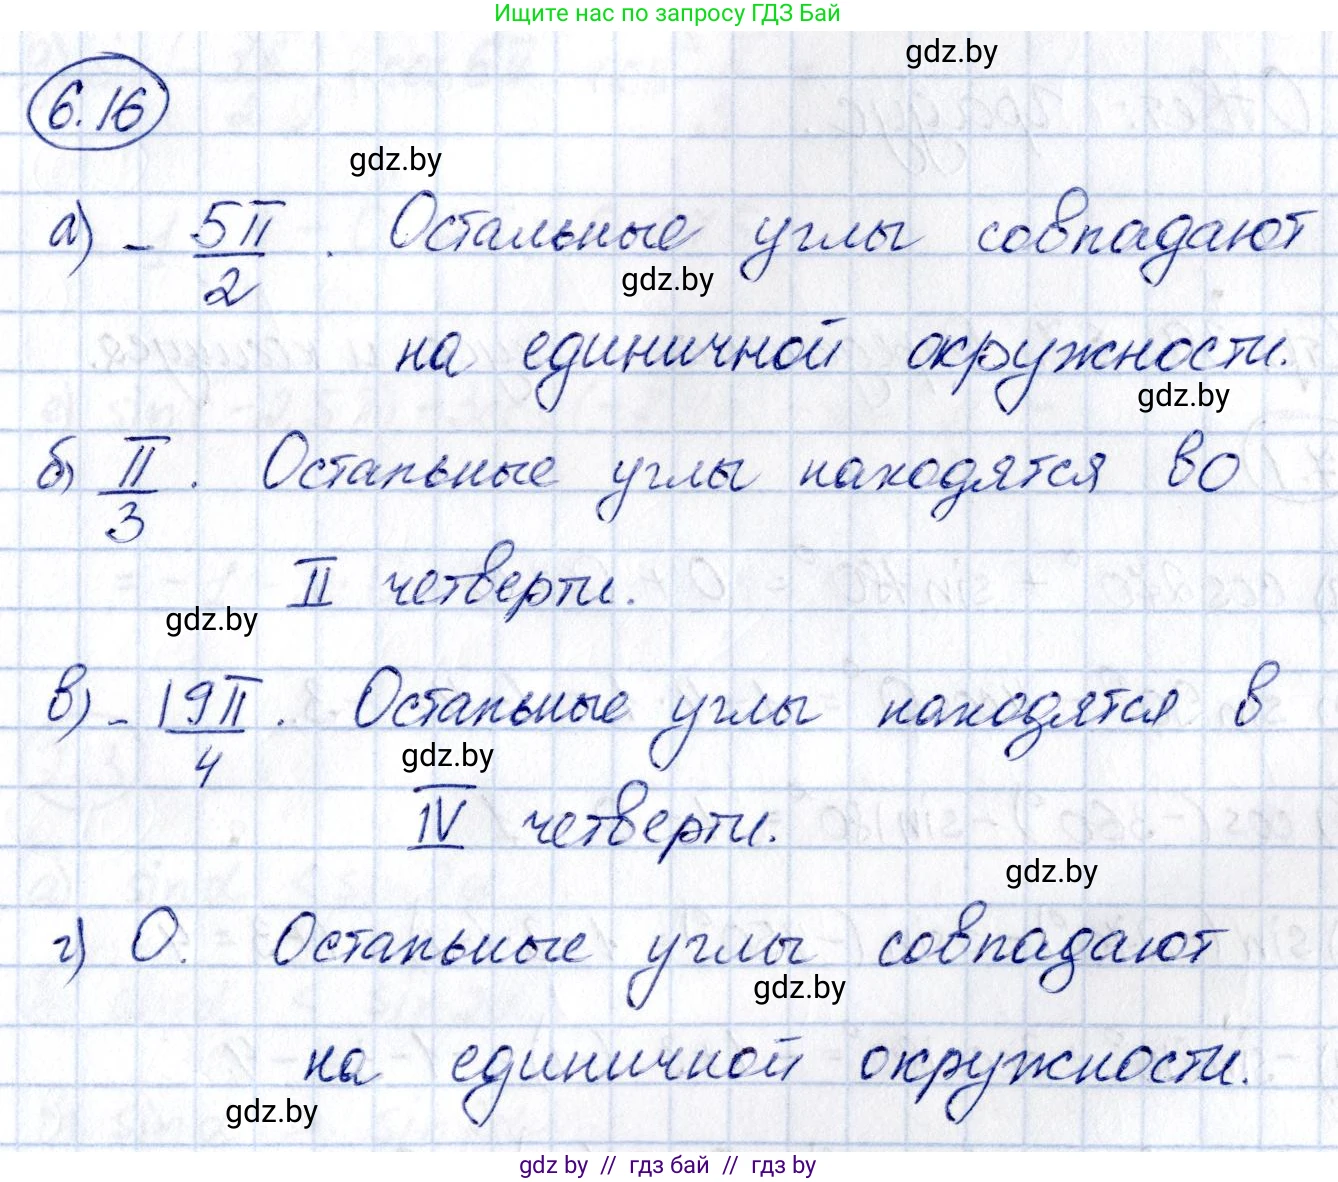 Ищите нас по запросу ГДЗ Бай
gdz.by
6.16
gdz.by
а) - 5π/2 . Остальные углы совпадают
gdz.by
на единичной окружности.
gdz.by
б) π/3 . Остальные углы находятся во
II четверти.
gdz.by
в) - 19π/4 . Остальные углы находятся в
gdz.by
IV четверти.
gdz.by
г) 0. Остальные углы совпадают
gdz.by
на единичной окружности.
gdz.by
gdz by // гдз бай // гдз by